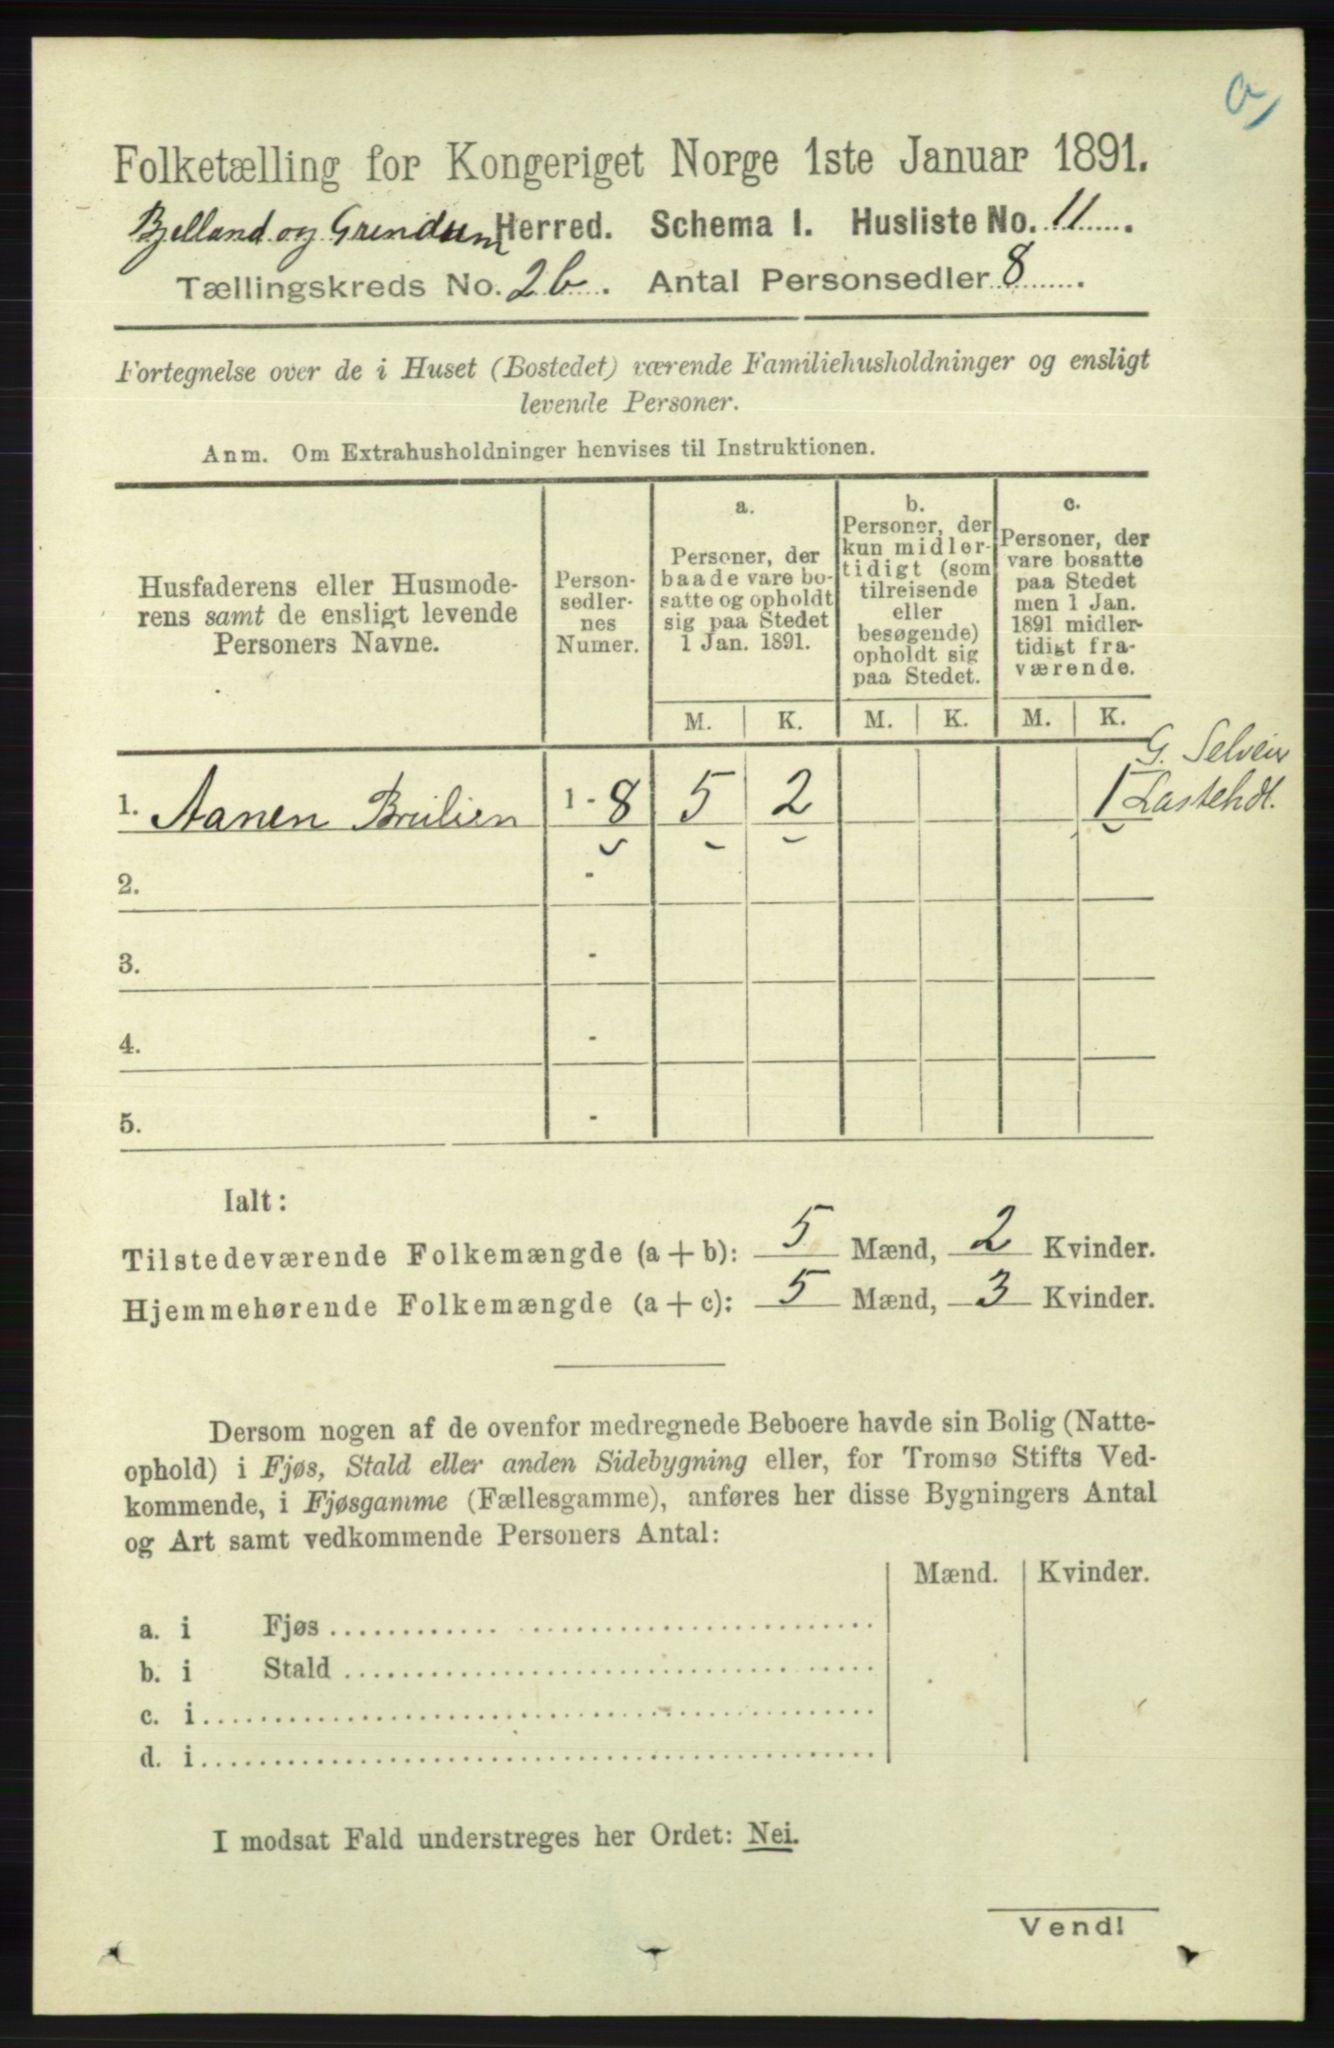 Folketælling for Kongeriget Norge 1ste Januar 1891.
Bjelland og Grendum Herred. Schema I. Husliste No. 11.
Tællingskreds No. 2b. Antal Personsedler 8.
Fortegnelse over de i Huset (Bostedet) værende Familiehusholdninger og ensligt
levende Personer.
Anm. Om Extrahusholdninger henvises til Instruktionen.
Husfaderens eller Husmode-
rens samt de ensligt levende
Personers Navne.
Person-
sedler-
nes
Numer.
a.
Personer, der
baade vare bo-
satte og opholdt
sig paa Stedet
1 Jan. 1891.
b.
Personer, der
kun midler-
tidigt (som
tilreisende
eller
besøgende)
opholdt sig
paa Stedet.
c.
Personer, der
vare bosatte
paa Stedet
men 1 Jan.
1891 midler-
tidigt fra-
værende.
M. K. M. K. M. K.
G.
1. Aanen 1 - 8 5 2 1
2. -
3. -
4. -
5. -
Ialt:
Tilstedeværende Folkemængde (a + b): 5 Mænd, 2 Kvinder.
Hjemmehørende Folkemængde (a + c): 5 Mænd, 3 Kvinder.
Dersom nogen af de ovenfor medregnede Beboere havde sin Bolig (Natte-
ophold) i Fjøs, Stald eller anden Sidebygning eller, for Tromsø Stifts Ved-
kommende, i Fjøsgamme (Fællesgamme), anføres her disse Bygningers Antal
og Art samt vedkommende Personers Antal:
Mænd. Kvinder.
a. i Fjøs
b. i Stald
c. i
d. i
I modsat Fald understreges her Ordet: Nei.
Vend!